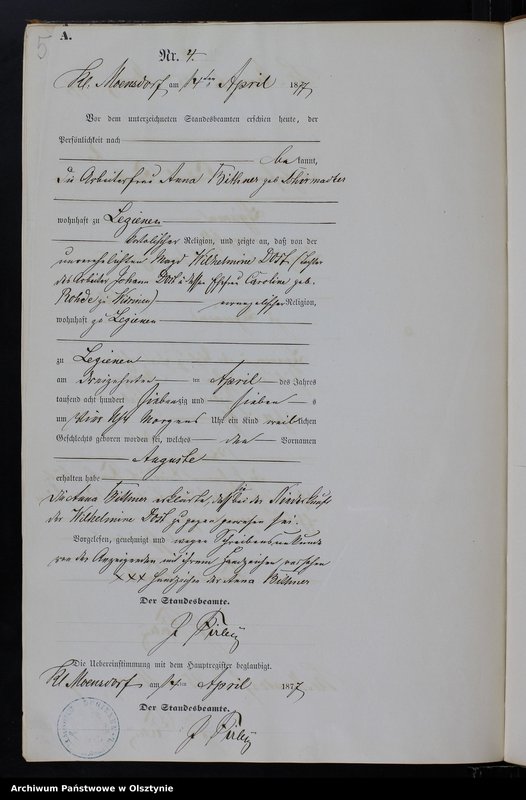 5
A.
Nr. 4.
Kl. Moensdorf am 14ten April 1877
Vor dem unterzeichneten Standesbeamten erschien heute, der
Persönlichkeit nach
bekannt,
die Arbeiterfrau Anna Bittner geb.
wohnhaft zu Legienen
katolischer Religion, und zeigte an, daß von der
unverehelichten Magd Wilhelmine Dost (Tochter
des Arbeiter Johann Dost u dessen Ehefrau Caroline geb.
Rohde zu) evangelischer Religion,
wohnhaft zu Legienen
zu Legienen
am dreizehnten im April des Jahres
tausend acht hundert siebenzig und sieben
um Uhr Morgens Uhr ein Kind weiblichen
Geschlechts geboren worden sei, welches den Vornamen
Auguste
erhalten habe
Die Anna Bittner erklärte, daß sie bei der Niederkunft
der Wilhelmine Dost zugegen gewesen sei.
Vorgelesen, genehmigt und wegen Schreibensunkunde
von der Anzeigenden mit ihrem Handzeichen versehen
XXX Handzeichen der Anna Bittner
Der Standesbeamte.
Die Uebereinstimmung mit dem Hauptregister beglaubigt.
Kl Moensdorf am 14ten April 1877
Der Standesbeamte.
Archiwum Państwowe w Olsztynie